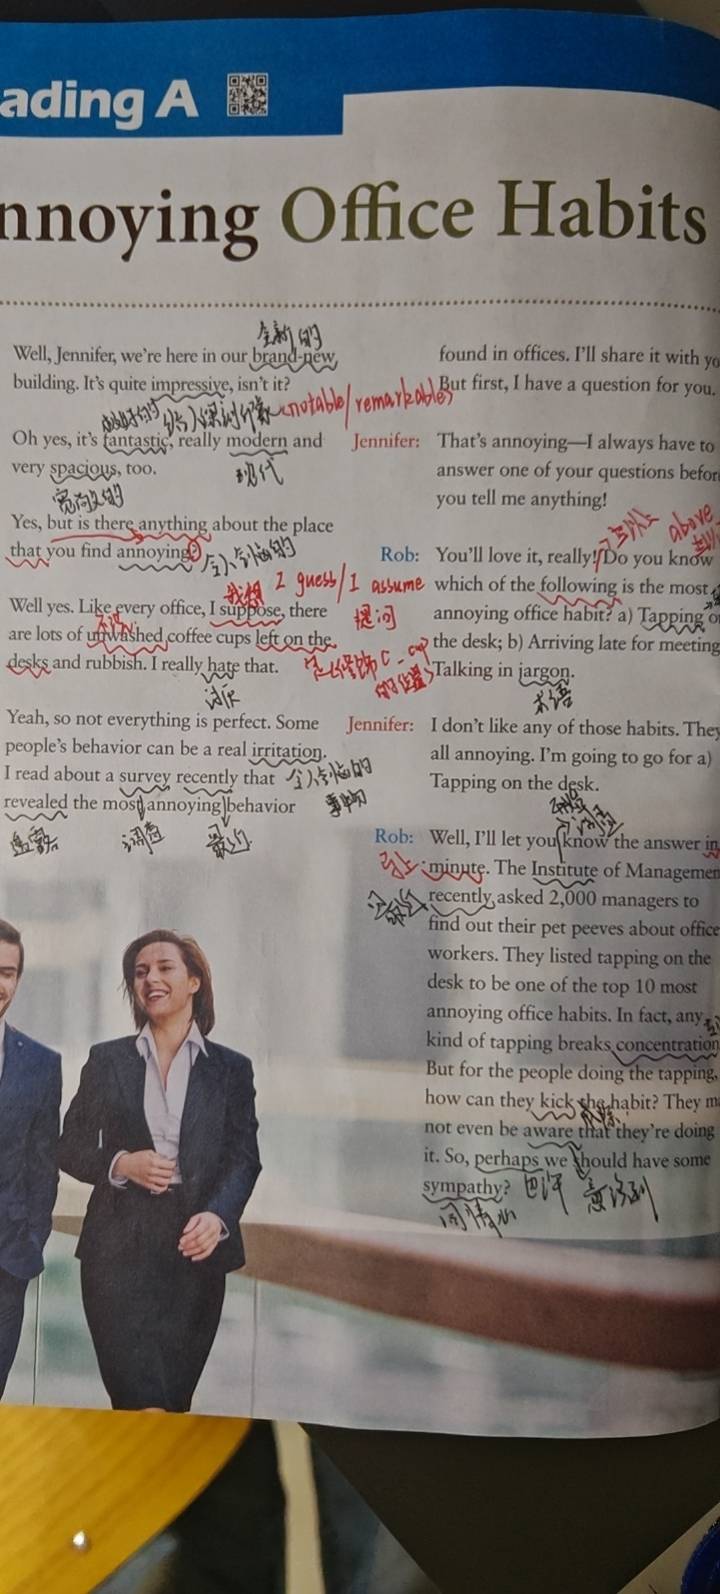 ading A
nnoying Office Habits
Well, Jennifer, we're here in our brand-new
building. It's quite impressive, isn't it?
全新的
notable/remarkable
Oh yes, it's fantastic, really modern and
very spacious, too.
现代
宽敞的
Yes, but is there anything about the place
that you find annoying?
令人气恼的
我想 I guess/I assume
Well yes. Like every office, I suppose, there
are lots of unwashed coffee cups left on the
desks and rubbish. I really hate that.
讨厌
Yeah, so not everything is perfect. Some
people's behavior can be a real irritation.
I read about a survey recently that
revealed the most annoying behavior
令人气恼的
事物
调查
最近
found in offices. I'll share it with yo
But first, I have a question for you.
Jennifer: That's annoying—I always have to
answer one of your questions befor
you tell me anything!
above
Rob: You'll love it, really! Do you know
which of the following is the most
annoying office habit? a) Tapping o
the desk; b) Arriving late for meeting
Talking in jargon.
提问
术语
Jennifer: I don't like any of those habits. They
all annoying. I'm going to go for a)
Tapping on the desk.
Rob: Well, I'll let you know the answer in
minute. The Institute of Managemen
recently asked 2,000 managers to
find out their pet peeves about office
workers. They listed tapping on the
desk to be one of the top 10 most
annoying office habits. In fact, any
kind of tapping breaks concentration
But for the people doing the tapping,
how can they kick the habit? They m
not even be aware that they're doing
it. So, perhaps we should have some
sympathy?
马上
意识到
同情心